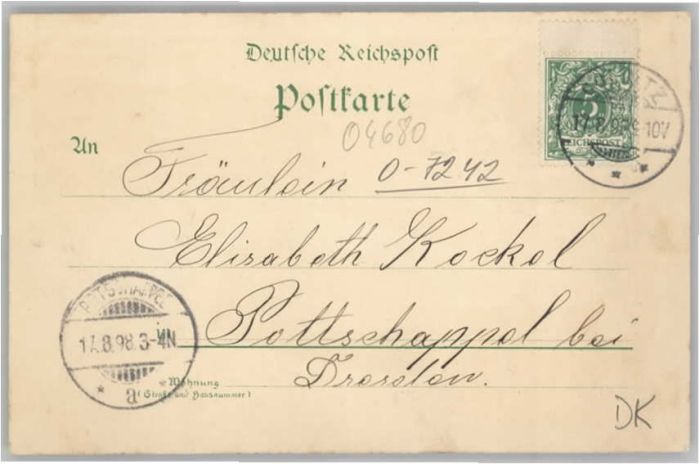 Deutsche Reichspost
Postkarte
04680
An
Fräulein 0-7242
Elisabeth Kockel
Pottschappel bei
Dresden.
Wohnung
(Straße und Hausnummer)
5
REICHSPOST
17.8.98 9-10V
POTSCHAPPEL
17.8.98.3-4N
a
DK